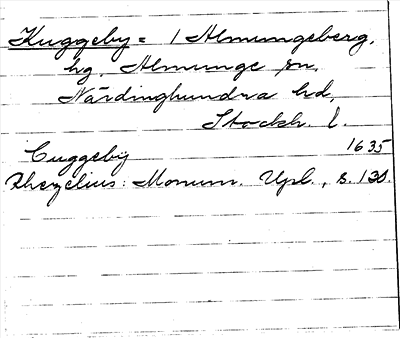 Kuggeby = / Almungeberg,
hg, Almunge sn,
Närdinghundra hd,
Stockh. l.
Cuggebÿ 1635
Rhezelius: Monum. Upl., s. 130.